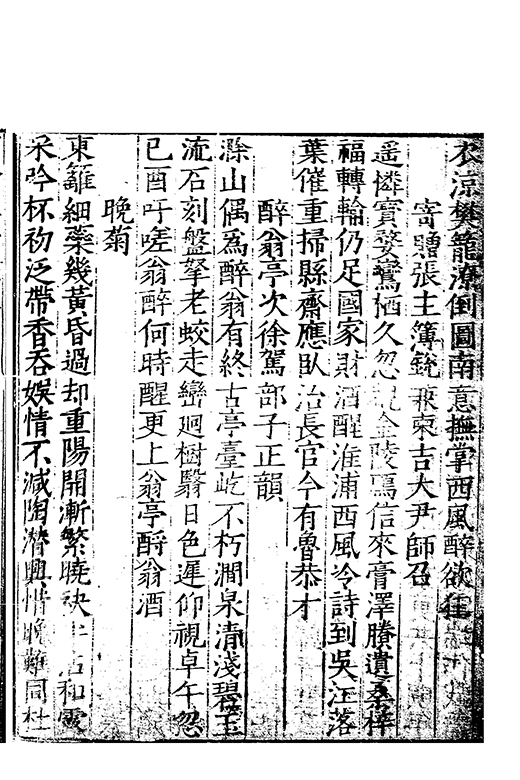 衣涼樊籠潦倒圖南意撫掌西風醉欲狂
寄贈張主簿銳兼柬吉大尹師召
遥憐實婺鸞栖久忽金陵馬信來膏澤賸遺桑梓
福轉輸仍足國家財酒醒淮浦西風冷詩到吳江落
葉催重掃縣齋應臥治長官今有魯恭才
醉翁亭次徐駕部子正韻
滁山偶爲醉翁有終古亭臺屹不朽澗泉清淺碧玉
流石刻盤拏老蛟走巒廻樹翳日色遲仰視卓午忽
已酉吁嗟翁醉何時醒更上翁亭酹翁酒
晚菊
東籬細蘂幾黃昏過却重陽開漸繁曉袂和露
采吟杯初泛帶香吞娛情不減陶潛興惜晚難同杜